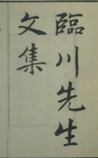 臨川先生
文集